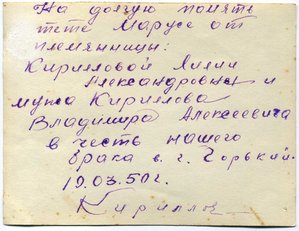 На долгую память
тете Марусе от
племянницы:
Кирилловой Лилии
Александровны и
мужа Кириллова
Владимира Алексеевича
в честь нашего
брака в г. Горький.
19.03.50 г.
Кириллов